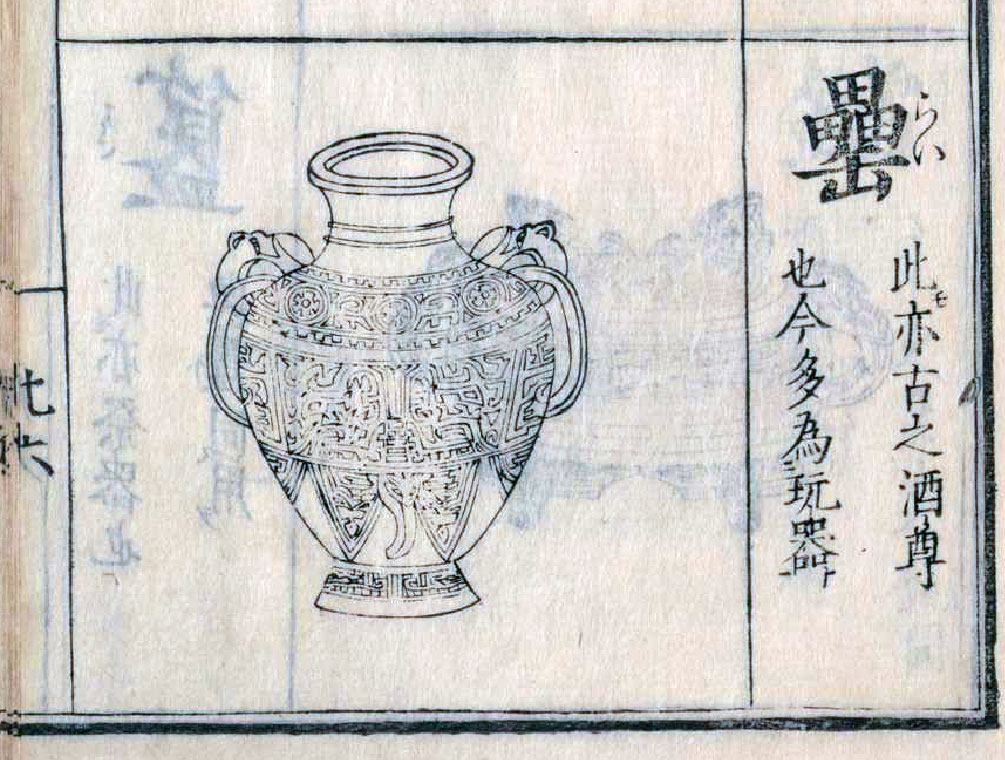 罍
らい
此亦古之酒尊
也今多為玩器
七